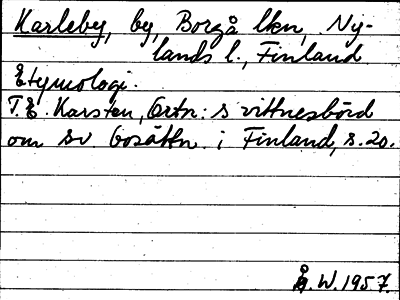 Karleby, by, Borgå lkn, Ny-
lands l., Finland
Etymologi.
T.E. Karsten, Ortn:s vittnesbörd
om sv bosättn. i Finland, s.20.
Å.W.1957.